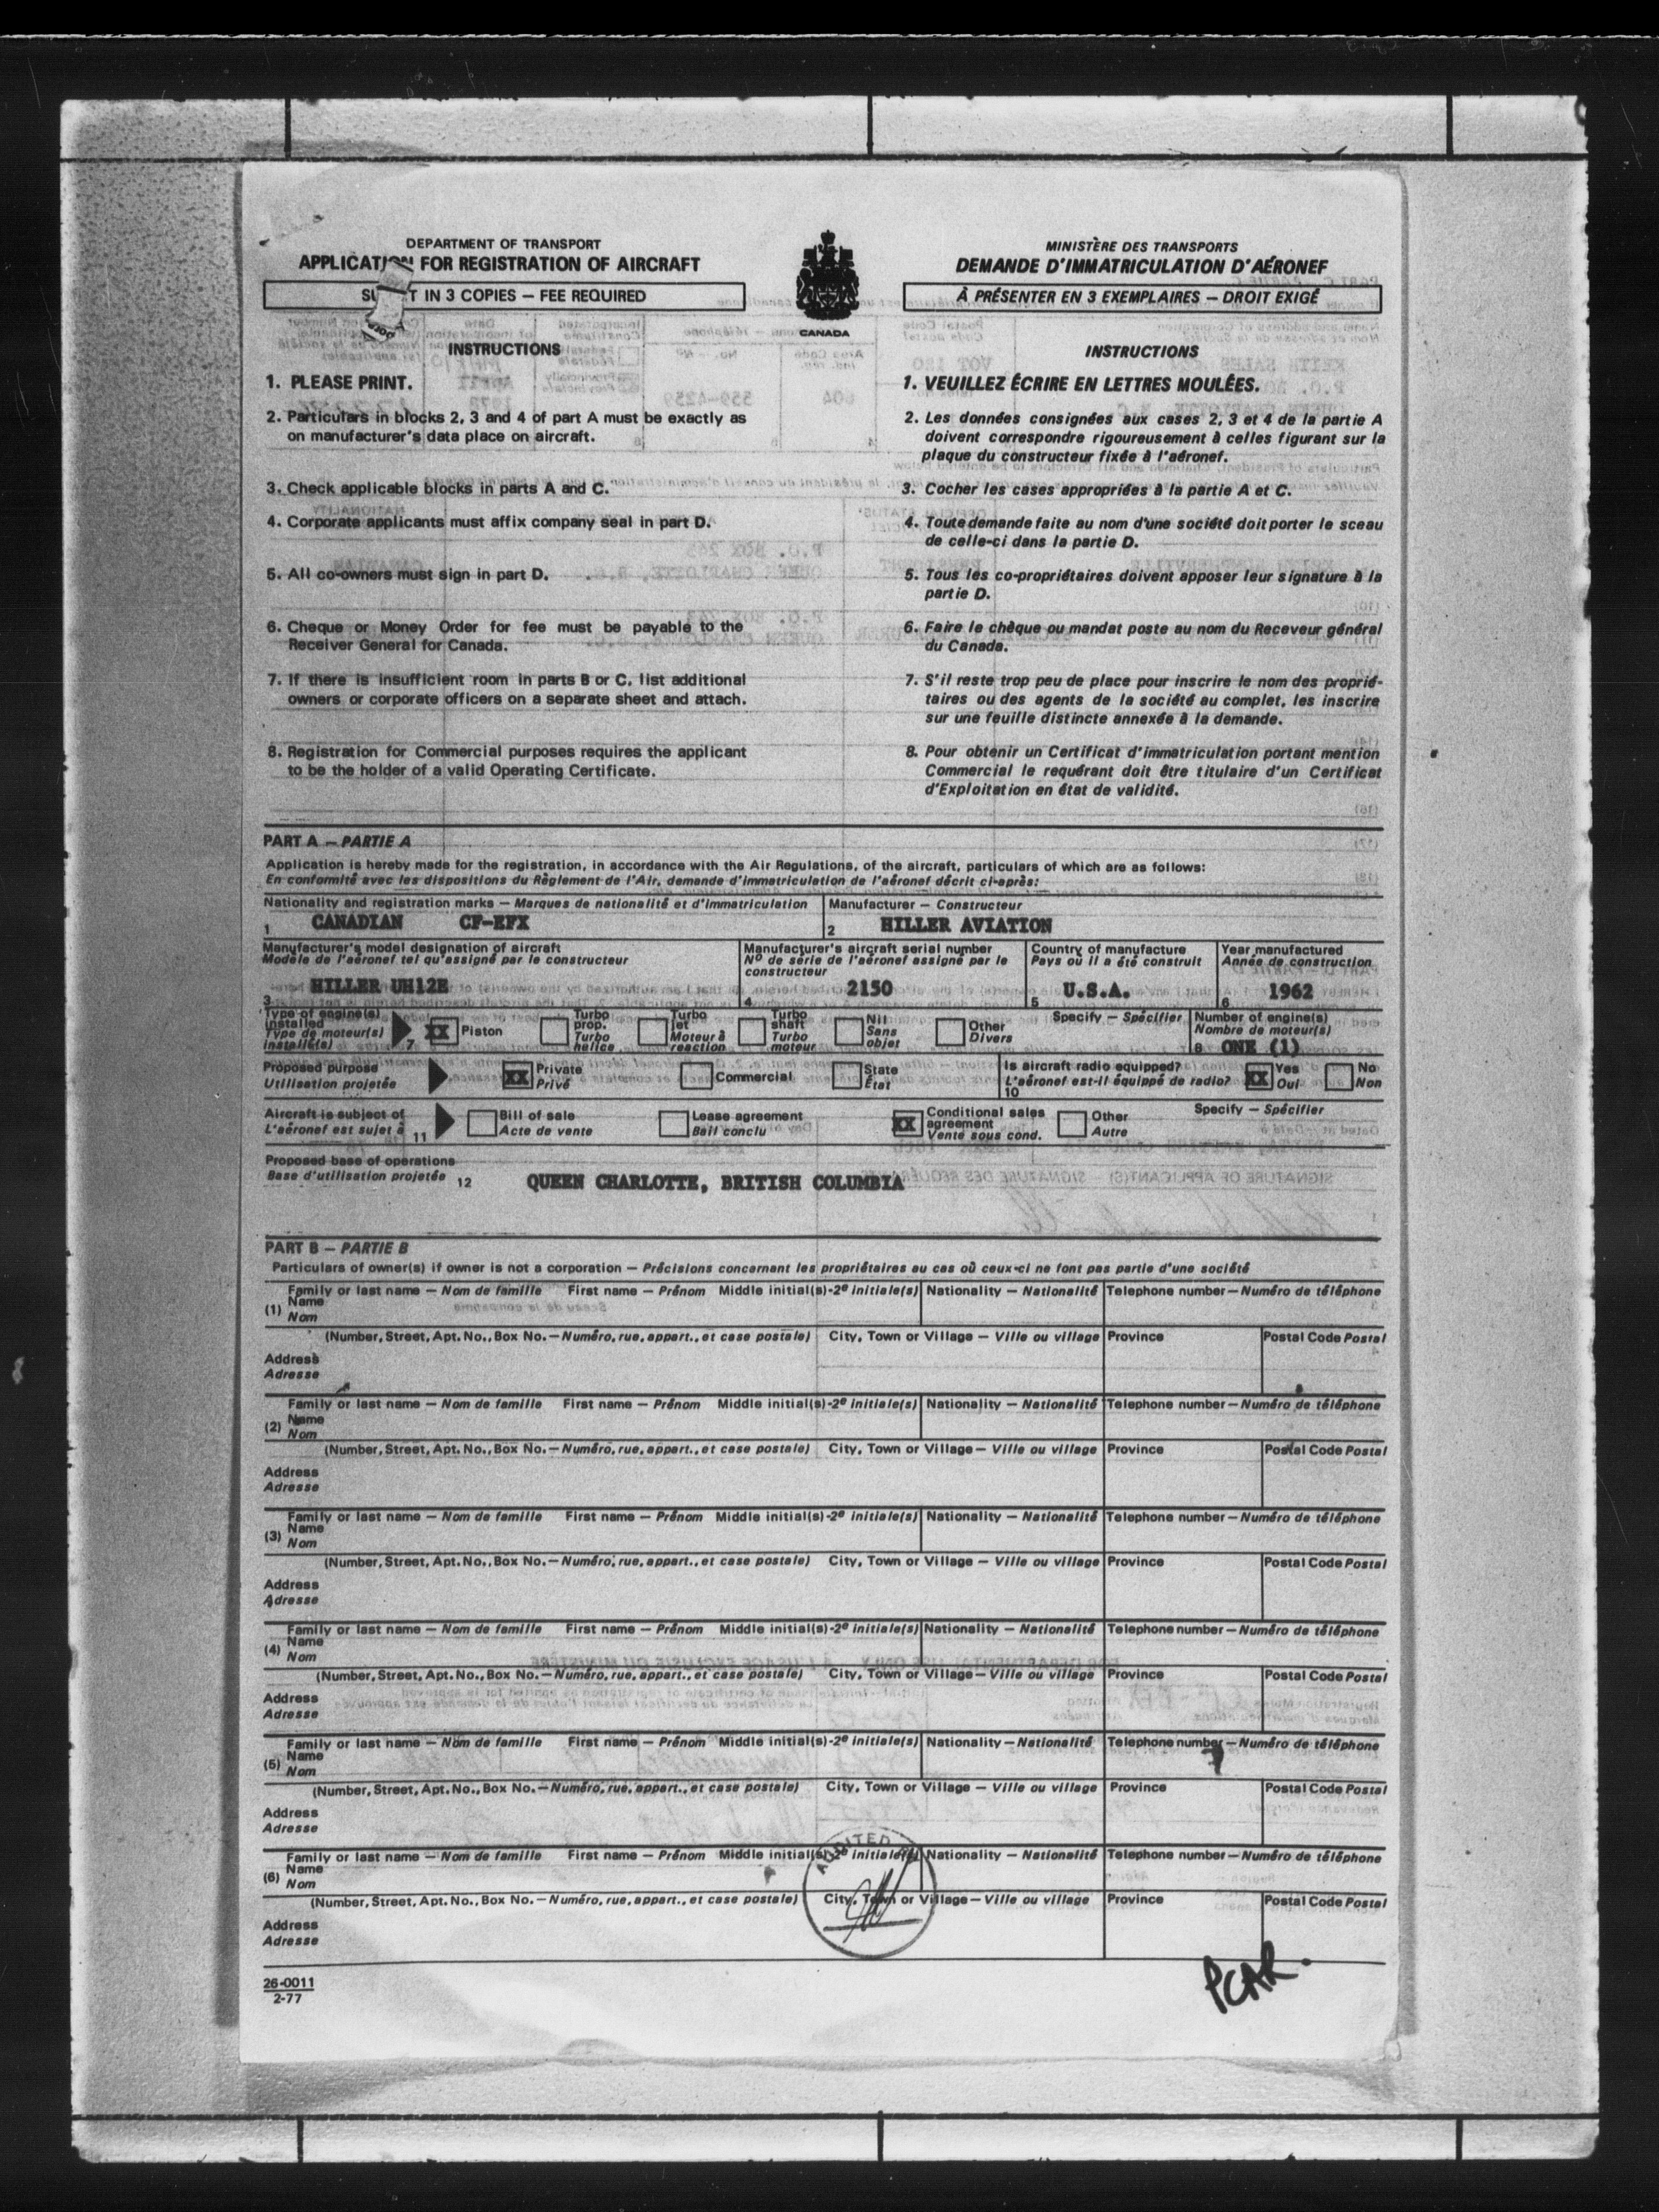 DEPARTMENT OF TRANSPORT
APPLICATION FOR REGISTRATION OF AIRCRAFT
T IN 3 COPIES — FEE REQUIRED
CANADA
MINISTÈRE DES TRANSPORTS
DEMANDE D'IMMATRICULATION D'AÉRONEF
À PRÉSENTER EN 3 EXEMPLAIRES — DROIT EXIGÉ
INSTRUCTIONS
1. PLEASE PRINT.
2. Particulars in blocks 2, 3 and 4 of part A must be exactly as
on manufacturer's data place on aircraft.
3. Check applicable blocks in parts A and C.
4. Corporate applicants must affix company seal in part D.
5. All co-owners must sign in part D.
6. Cheque or Money Order for fee must be payable to the
Receiver General for Canada.
7. If there is insufficient room in parts B or C, list additional
owners or corporate officers on a separate sheet and attach.
8. Registration for Commercial purposes requires the applicant
to be the holder of a valid Operating Certificate.
INSTRUCTIONS
1. VEUILLEZ ÉCRIRE EN LETTRES MOULÉES.
2. Les données consignées aux cases 2, 3 et 4 de la partie A
doivent correspondre rigoureusement à celles figurant sur la
plaque du constructeur fixée à l'aéronef.
3. Cocher les cases appropriées à la partie A et C.
4. Toute demande faite au nom d'une société doit porter le sceau
de celle-ci dans la partie D.
5. Tous les co-propriétaires doivent apposer leur signature à la
partie D.
6. Faire le chèque ou mandat poste au nom du Receveur général
du Canada.
7. S'il reste trop peu de place pour inscrire le nom des proprié-
taires ou des agents de la société au complet, les inscrire
sur une feuille distincte annexée à la demande.
8. Pour obtenir un Certificat d'immatriculation portant mention
Commercial le requérant doit être titulaire d'un Certificat
d'Exploitation en état de validité.
PART A — PARTIE A
Application is hereby made for the registration, in accordance with the Air Regulations, of the aircraft, particulars of which are as follows:
En conformité avec les dispositions du Règlement de l'Air, demande d'immatriculation de l'aéronef décrit ci-après:
Nationality and registration marks — Marques de nationalité et d'immatriculation
1 CANADIAN CF-EFX
Manufacturer — Constructeur
2 HILLER AVIATION
Manufacturer's model designation of aircraft
Modèle de l'aéronef tel qu'assigné par le constructeur
3 HILLER UH12E
Manufacturer's aircraft serial number
Nº de série de l'aéronef assigné par le
constructeur
4 2150
Country of manufacture
Pays où il a été construit
5 U.S.A.
Year manufactured
Année de construction
6 1962
Type of engine(s)
installed
Type de moteur(s)
installé(s)
7 XX Piston
Turbo
prop.
Turbo
hélice
Turbo
jet
Moteur à
réaction
Turbo
shaft
Turbo
moteur
Nil
Sans
objet
Other
Divers
Specify — Spécifier
Number of engine(s)
Nombre de moteur(s)
8 ONE (1)
Proposed purpose
Utilisation projetée
XX Private
Privé
Commercial
State
État
Is aircraft radio equipped?
L'aéronef est-il équippé de radio?
10
XX Yes
Oui
No
Non
Aircraft is subject of
L'aéronef est sujet à 11
Bill of sale
Acte de vente
Lease agreement
Bail conclu
XX Conditional sales
agreement
Vente sous cond.
Other
Autre
Specify — Spécifier
Proposed base of operations
Base d'utilisation projetée 12 QUEEN CHARLOTTE, BRITISH COLUMBIA
PART B — PARTIE B
Particulars of owner(s) if owner is not a corporation — Précisions concernant les propriétaires au cas où ceux-ci ne font pas partie d'une société
Family or last name — Nom de famille First name — Prénom Middle initial(s)-2e initiale(s) Nationality — Nationalité Telephone number — Numéro de téléphone
(1) Name
Nom
(Number, Street, Apt. No., Box No. — Numéro, rue, appart., et case postale) City, Town or Village — Ville ou village Province Postal Code Postal
Address
Adresse
Family or last name — Nom de famille First name — Prénom Middle initial(s)-2e initiale(s) Nationality — Nationalité Telephone number — Numéro de téléphone
(2) Name
Nom
(Number, Street, Apt. No., Box No. — Numéro, rue, appart., et case postale) City, Town or Village — Ville ou village Province Postal Code Postal
Address
Adresse
Family or last name — Nom de famille First name — Prénom Middle initial(s)-2e initiale(s) Nationality — Nationalité Telephone number — Numéro de téléphone
(3) Name
Nom
(Number, Street, Apt. No., Box No. — Numéro, rue, appart., et case postale) City, Town or Village — Ville ou village Province Postal Code Postal
Address
Adresse
Family or last name — Nom de famille First name — Prénom Middle initial(s)-2e initiale(s) Nationality — Nationalité Telephone number — Numéro de téléphone
(4) Name
Nom
(Number, Street, Apt. No., Box No. — Numéro, rue, appart., et case postale) City, Town or Village — Ville ou village Province Postal Code Postal
Address
Adresse
Family or last name — Nom de famille First name — Prénom Middle initial(s)-2e initiale(s) Nationality — Nationalité Telephone number — Numéro de téléphone
(5) Name
Nom
(Number, Street, Apt. No., Box No. — Numéro, rue, appart., et case postale) City, Town or Village — Ville ou village Province Postal Code Postal
Address
Adresse
Family or last name — Nom de famille First name — Prénom Middle initial(s)-2e initiale(s) Nationality — Nationalité Telephone number — Numéro de téléphone
(6) Name
Nom
(Number, Street, Apt. No., Box No. — Numéro, rue, appart., et case postale) City, Town or Village — Ville ou village Province Postal Code Postal
Address
Adresse
AUDITED
26-0011
2-77
PCAR.